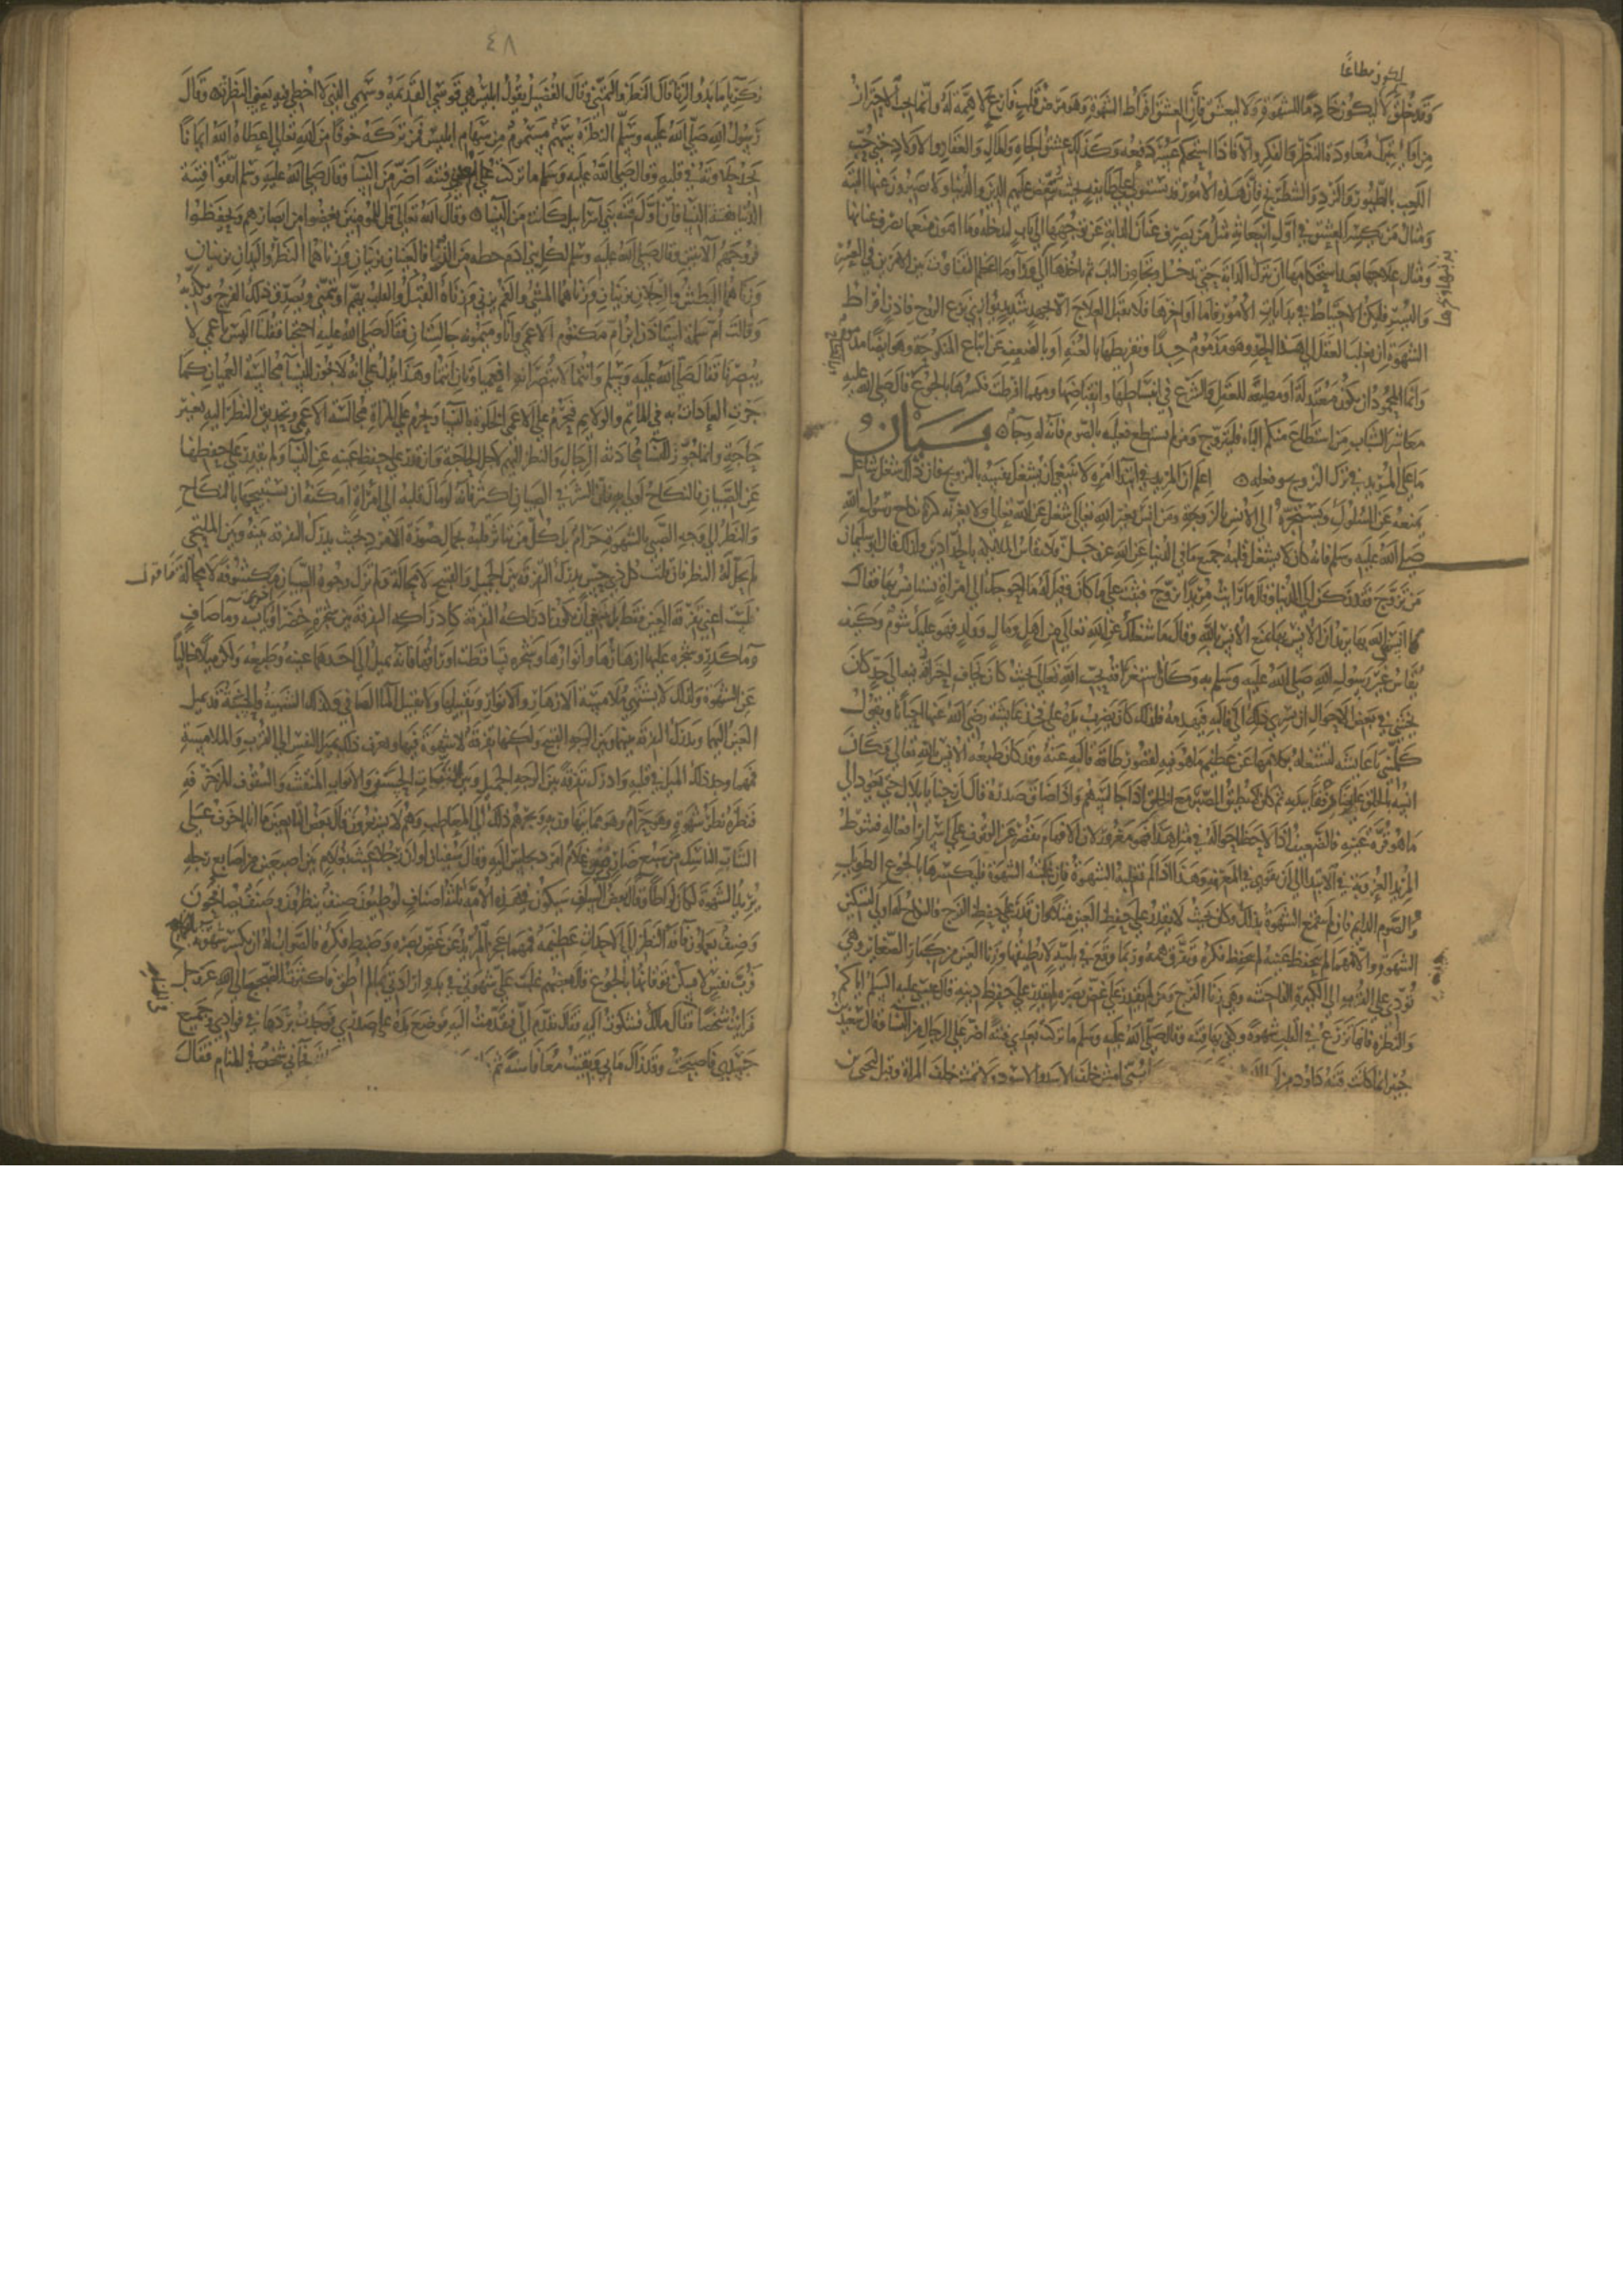 ليكون مطاعًا
وقد خلق لا ليكون خادمًا للشهوة ولا ليعشق فان العشق افراط الشهوة وهو مرض قلب فارغ لا همة له وانما يجب الاحتراز
من اوائله بترك معاودة النظر والفكر والا فاذا استحكم عسر دفعه وكذلك عشق الجاه والمال والعقار والاولاد حتى حب
اللعب بالطيور والنرد والشطرنج فان هذه الامور قد تستولي على طائفة بحيث تنغص عليهم الدين والدنيا ولا يصبرون عنها البتة
ومثال من يكسر العشق في اول انبعاثه مثل من يصرف عنان الدابة عن توجهها الى باب لتدخله وما اهون منعها بصرف عنانها
ومثال علاجها بعد استحكامها ان تترك الدابة حتى تدخل وتجاوز الباب ثم ياخذ بذنبها ويجرها الى ورا وما اعظم التفاوت بين الامرين في العسر
واليسر فليكن الاحتياط في بدايات الامور فاما اواخرها فلا تقبل العلاج الا بجهد شديد يوازي نزع الروح فاذن افراط
الشهوة ان يغلب العقل الى هذا الحد وهو مذموم جدًا وتفريطها بالعنة او بالضعف عن امتاع المنكوحة وهو ايضا مذموم
وانما المحمود ان تكون معتدلة او مطيعة للعقل والشرع في انبساطها وانقباضها ومهما افرطت فكسرها بالجوع قال صلى الله عليه
معاشر الشباب من استطاع منكم الباه فليتزوج ومن لم يستطع فعليه بالصوم فانه له وجاء بيان
ما على المريد في ترك التزويج وفعله اعلم ان المريد في ابتدا امره لا ينبغي ان يشغل نفسه بالتزويج فان ذلك شغل شاغل
يمنعه عن السلوك ويستجره الى الانس بالزوجة ومن انس بغير الله تعالى شغل عن الله تعالى ولا يغرنه كثرة نكاح رسول الله
صلى الله عليه وسلم فانه كان لا يشغل قلبه جميع ما في الدنيا عن الله عز وجل فلا تقاس الملائكة بالحدادين ولذلك قال ابو سليمان
من تزوج فقد ركن الى الدنيا وقال ما رايت مريدًا تزوج فثبت على ما كان وقيل له ما احوجك الى امراة تستانس بها فقال
لا انسني الله بها يريد ان الانس بها يمنع الانس بالله وقال ما شغلك عن الله تعالى من اهل ومال وولد فهو عليك شوم وكيف
يقاس غير رسول الله صلى الله عليه وسلم به وكان استغراقه بحب الله تعالى بحيث كان يخاف احتراقه فيه الى حد كان
يخشى في بعض الاحوال ان يسري ذلك الى قالبه فيهدمه فلذلك كان يضرب بيده على فخذ عائشة رضي الله عنها احيانا ويقول
كلميني يا عائشة لتشغله بكلامها عن عظيم ما هو فيه لقصور طاقة قالبه عنه وقد كان طبعه الانس بالله تعالى وكان
انسه بالخلق عارضا رفقا ببدنه ثم كان لا يطيق الصبر مع الخلق اذا جالسهم واذا ضاق صدره قال ارحنا يا بلال حتى يعود الى
ما هو قرة عينه فالضعيف اذا لاحظ احواله في مثل هذا فهو مغرور لان الافهام تقصر عن الوقوف على اسرار افعاله فشرط
المريد العزوبة في الابتدا الى ان يقوى في المعرفة وهذا اذا لم تغلبه الشهوة فان غلبته الشهوة فليكسرها بالجوع الطويل
والصوم الدايم فان لم تنقمع الشهوة بذلك وكان بحيث لا يقدر على حفظ العين مثلا وان قدر على حفظ الفرج فالنكاح له اولى لتسكين
الشهوة والا فمهما لم يحفظ عينه لم يحفظ فكره وتفرق همه وربما وقع في بلية لا يطيقها وزنا العين من كبار الصغاير وهي
تودي على القرب الى الكبيرة الفاحشة وهي زنا الفرج ومن لم يقدر على غض بصره لم يقدر على حفظ دينه قال عيسى عليه السلم اياكم
والنظرة فانها تزرع في القلب شهوة وكفى بها فتنة وقال صلى الله عليه وسلم ما تركت بعدي فتنة اضر على الرجال من النسا وقال سعيد بن
جبير انما كانت فتنة داود من امش خلف الاسد والاسود ولا تمش خلف المراة وقيل ليحيى بن
٤٨
زكريا ما بدو الزنا قال النظر والتمني وقال الفضيل يقول ابليس هي قوسي القديمة وسهمي الذي لا اخطي به يعني النظر وقال
رسول الله صلى الله عليه وسلم النظرة سهم مسموم من سهام ابليس فمن تركه خوفا من الله تعالى اعطاه الله ايمانا
يجد حلاوته في قلبه وقال صلى الله عليه وسلم ما تركت على امتي فتنة اضر من النسا وقال صلى الله عليه وسلم اتقوا فتنة
الدنيا وفتنة النسا فان اول فتنة بني اسرايل كانت من النسا وقال الله تعالى قل للمومنين يغضوا من ابصارهم ويحفظوا
فروجهم الآيتين وقال صلى الله عليه وسلم لكل بني ادم حظه من الزنا فالعينان يزنيان وزناهما النظر واليدان يزنيان
وزناهما البطش والرجلان يزنيان وزناهما المشي والفم يزني وزناه القبل والقلب يهم او يتمنى ويصدق ذلك الفرج ويكذبه
وقالت ام سلمة استاذن ابن ام مكتوم الاعمى وانا وميمونة جالستان فقال صلى الله عليه احتجبا فقلنا اليس اعمى لا
يبصرنا فقال صلى الله عليه وسلم وانتما لا تبصرانه افعمياوان انتما وهذا يدل على انه لا يجوز للنسا مجالسة العميان كما
جرت العادات به في المآتم والولايم فيحرم على الاعمى الخلوة بالنسا ويحرم على المراة مجالسة الاعمى وتحديق النظر اليه بغير
حاجة وانما جوز للنسا محادثة الرجال والنظر اليهم لاجل الحاجة وان قدر على حفظ عينه عن النسا ولم يقدر على حفظها
عن الصبيان فالنكاح اولى به فان الشر في الصبيان اكثر فانه لو مال قلبه الى امراة امكنه ان يستبيحها بالنكاح
والنظر الى وجه الصبي بالشهوة حرام بل كل من يتاثر قلبه بجمال صورة الامرد بحيث يدرك التفرقة بينه وبين الملتحي
لم يحل له النظر فان قلت كل ذي حس يدرك التفرقة بين الجميل والقبيح لا محالة ولم تزل وجوه الصبيان مكشوفة لا محالة فاقول
لست اعني تفرقة العين فقط بل ينبغي ان يكون ادراكه التفرقة كادراكه التفرقة بين شجرة خضرا ويابسة وما صاف
وما كدر وشجرة عليها ازهارها وانوارها وشجرة تساقطت اوراقها فانه يميل الى احدهما عينه وطبعه ولكن ميلا خاليا
عن الشهوة ولذلك لا يشتهي ملامسة الازهار والانوار وتقبيلها ولا تقبيل الما الصافي وكذلك الشيبة الحسنة قد تميل
العين اليها ويدرك التفرقة بينها وبين الوجه القبيح ولكنها تفرقة لا شهوة فيها ويعرف ذلك بميل النفس الى القرب والملامسة
فمهما وجد ذلك الميل في قلبه وادرك تفرقة بين الوجه الجميل وبين النبات الحسن والاثواب المنقشة والسقوف المذهبة
فنظره نظر شهوة وهو حرام وهو مما يتهاون به ويجرهم ذلك الى المعاطب وهم لا يشعرون قال بعض التابعين ما انا باخوف على
الشاب الناسك من سبع ضار من غلام امرد يجلس اليه وقال سفيان لو ان رجلا عبث بغلام بين اصبعين من اصابع رجله
يريد الشهوة لكان لواطا وقال بعض السلف سيكون في هذه الامة ثلثة اصناف لوطيون صنف ينظرون وصنف يصافحون
وصنف يعملون فآفة النظر الى الاحداث عظيمة فمهما عجز المريد عن غض بصره وضبط فكره فالصواب له ان يكسر شهوته بالنكاح
فرب نفس لا يسكن توقانها بالجوع قال بعضهم غلبت علي شهوتي في بدو ارادتي بما لم اطق فاكثرت الضجيج الى الله عز وجل
فرايت شخصا فقال مالك فشكوت اليه فقال تقدم الي فتقدمت اليه فوضع يده على صدري فوجدت بردها في فوادي وجميع
جسدي فاصبحت وقد زال ما بي وبقيت معافا سنة ثم فآتاني شخص في المنام فقال